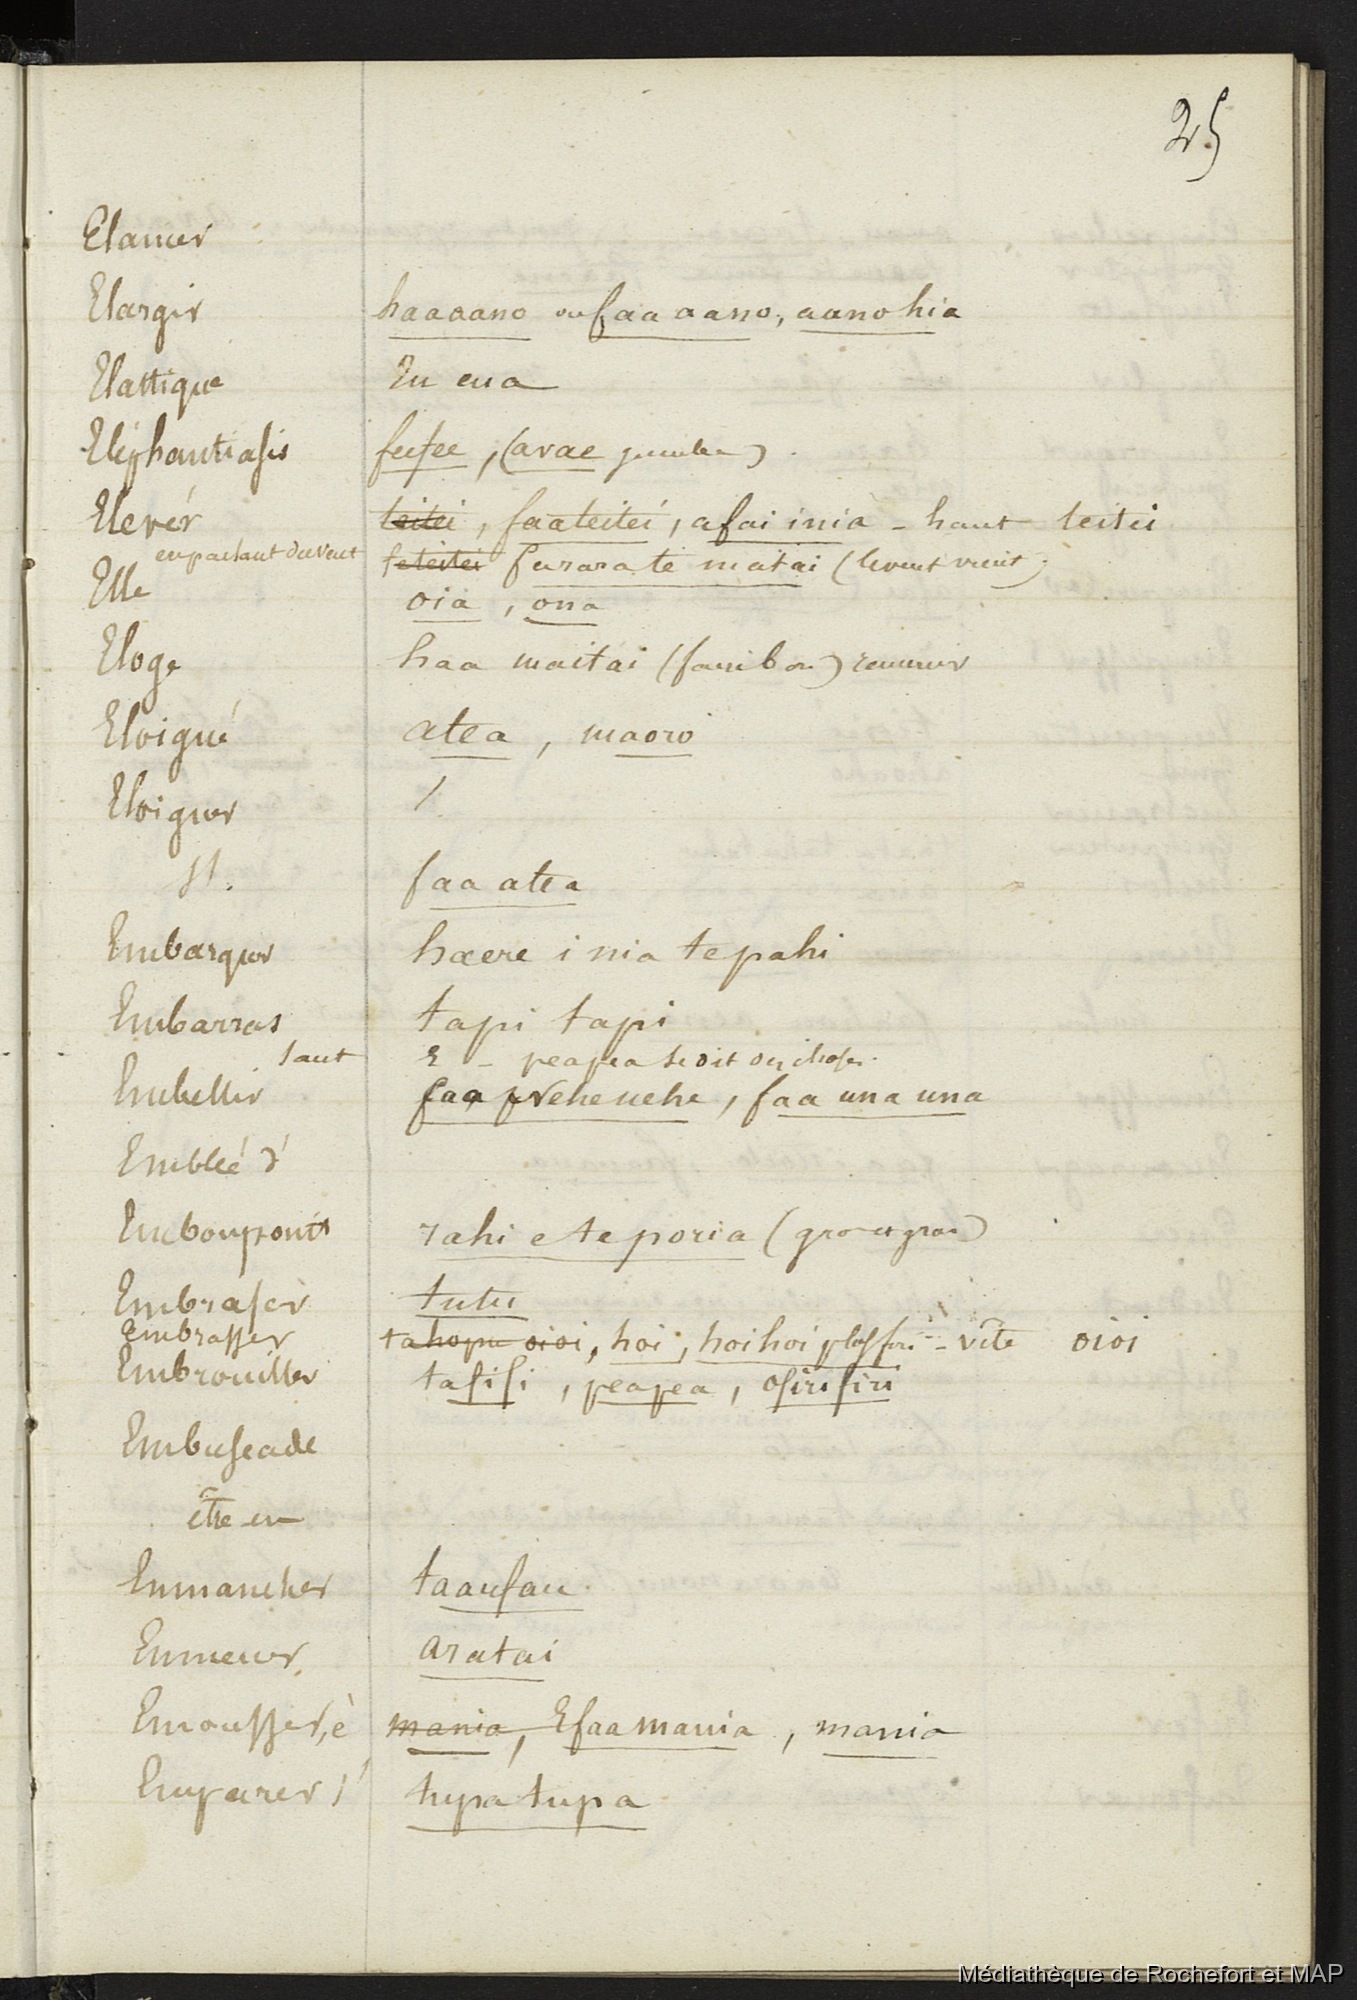 25
Elancer
Elargir haaaano ou faa aano, aanohia
Elastique Eu eua
Eléphantiasis feefee, (avae jambe)
Elever teitei, faateitei, afai inia - haut teitei
en parlant du vent teitei farara te matai (le vent vient)
Elle oia, ona
Eloge haa maitai (faire bon)
Eloigné atea, maoro
Eloigner /
s'. faa atea
Embarquer haere i nia te pahi
Embarras tapi tapi
sant E - peapea soit ou choses.
Embellir faa nehenehe, faa una una
Emblée d'
Embonpoint rahi e te poria (gros et gras)
Embraser tutu
Embrasser tahopu oioi, hoi, hoihoi plus fort - vite oioi
Embrouiller tafifi, peapea, ofirifiri
Embuscade
être en
Emmancher taaufau.
Emmener aratai
Emousser, é mania, Efaamania, mania
Emparer s' tupatupa
Médiathèque de Rochefort et MAP